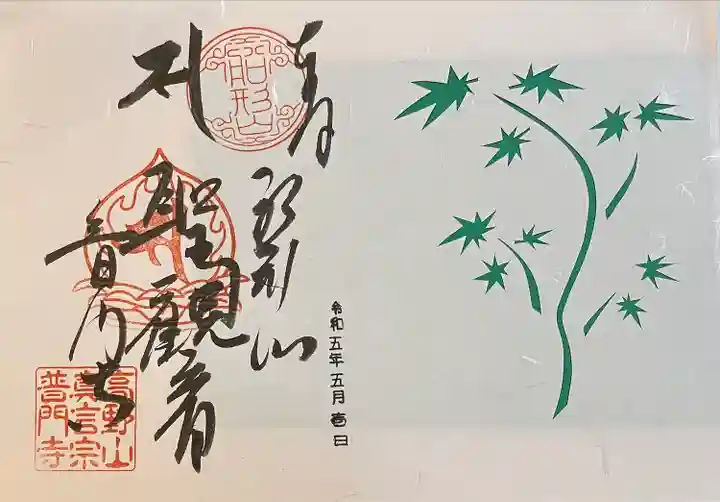 船形山
船形山
聖觀音
普門寺
高野山
真言宗
普門寺
令和五年五月壱日